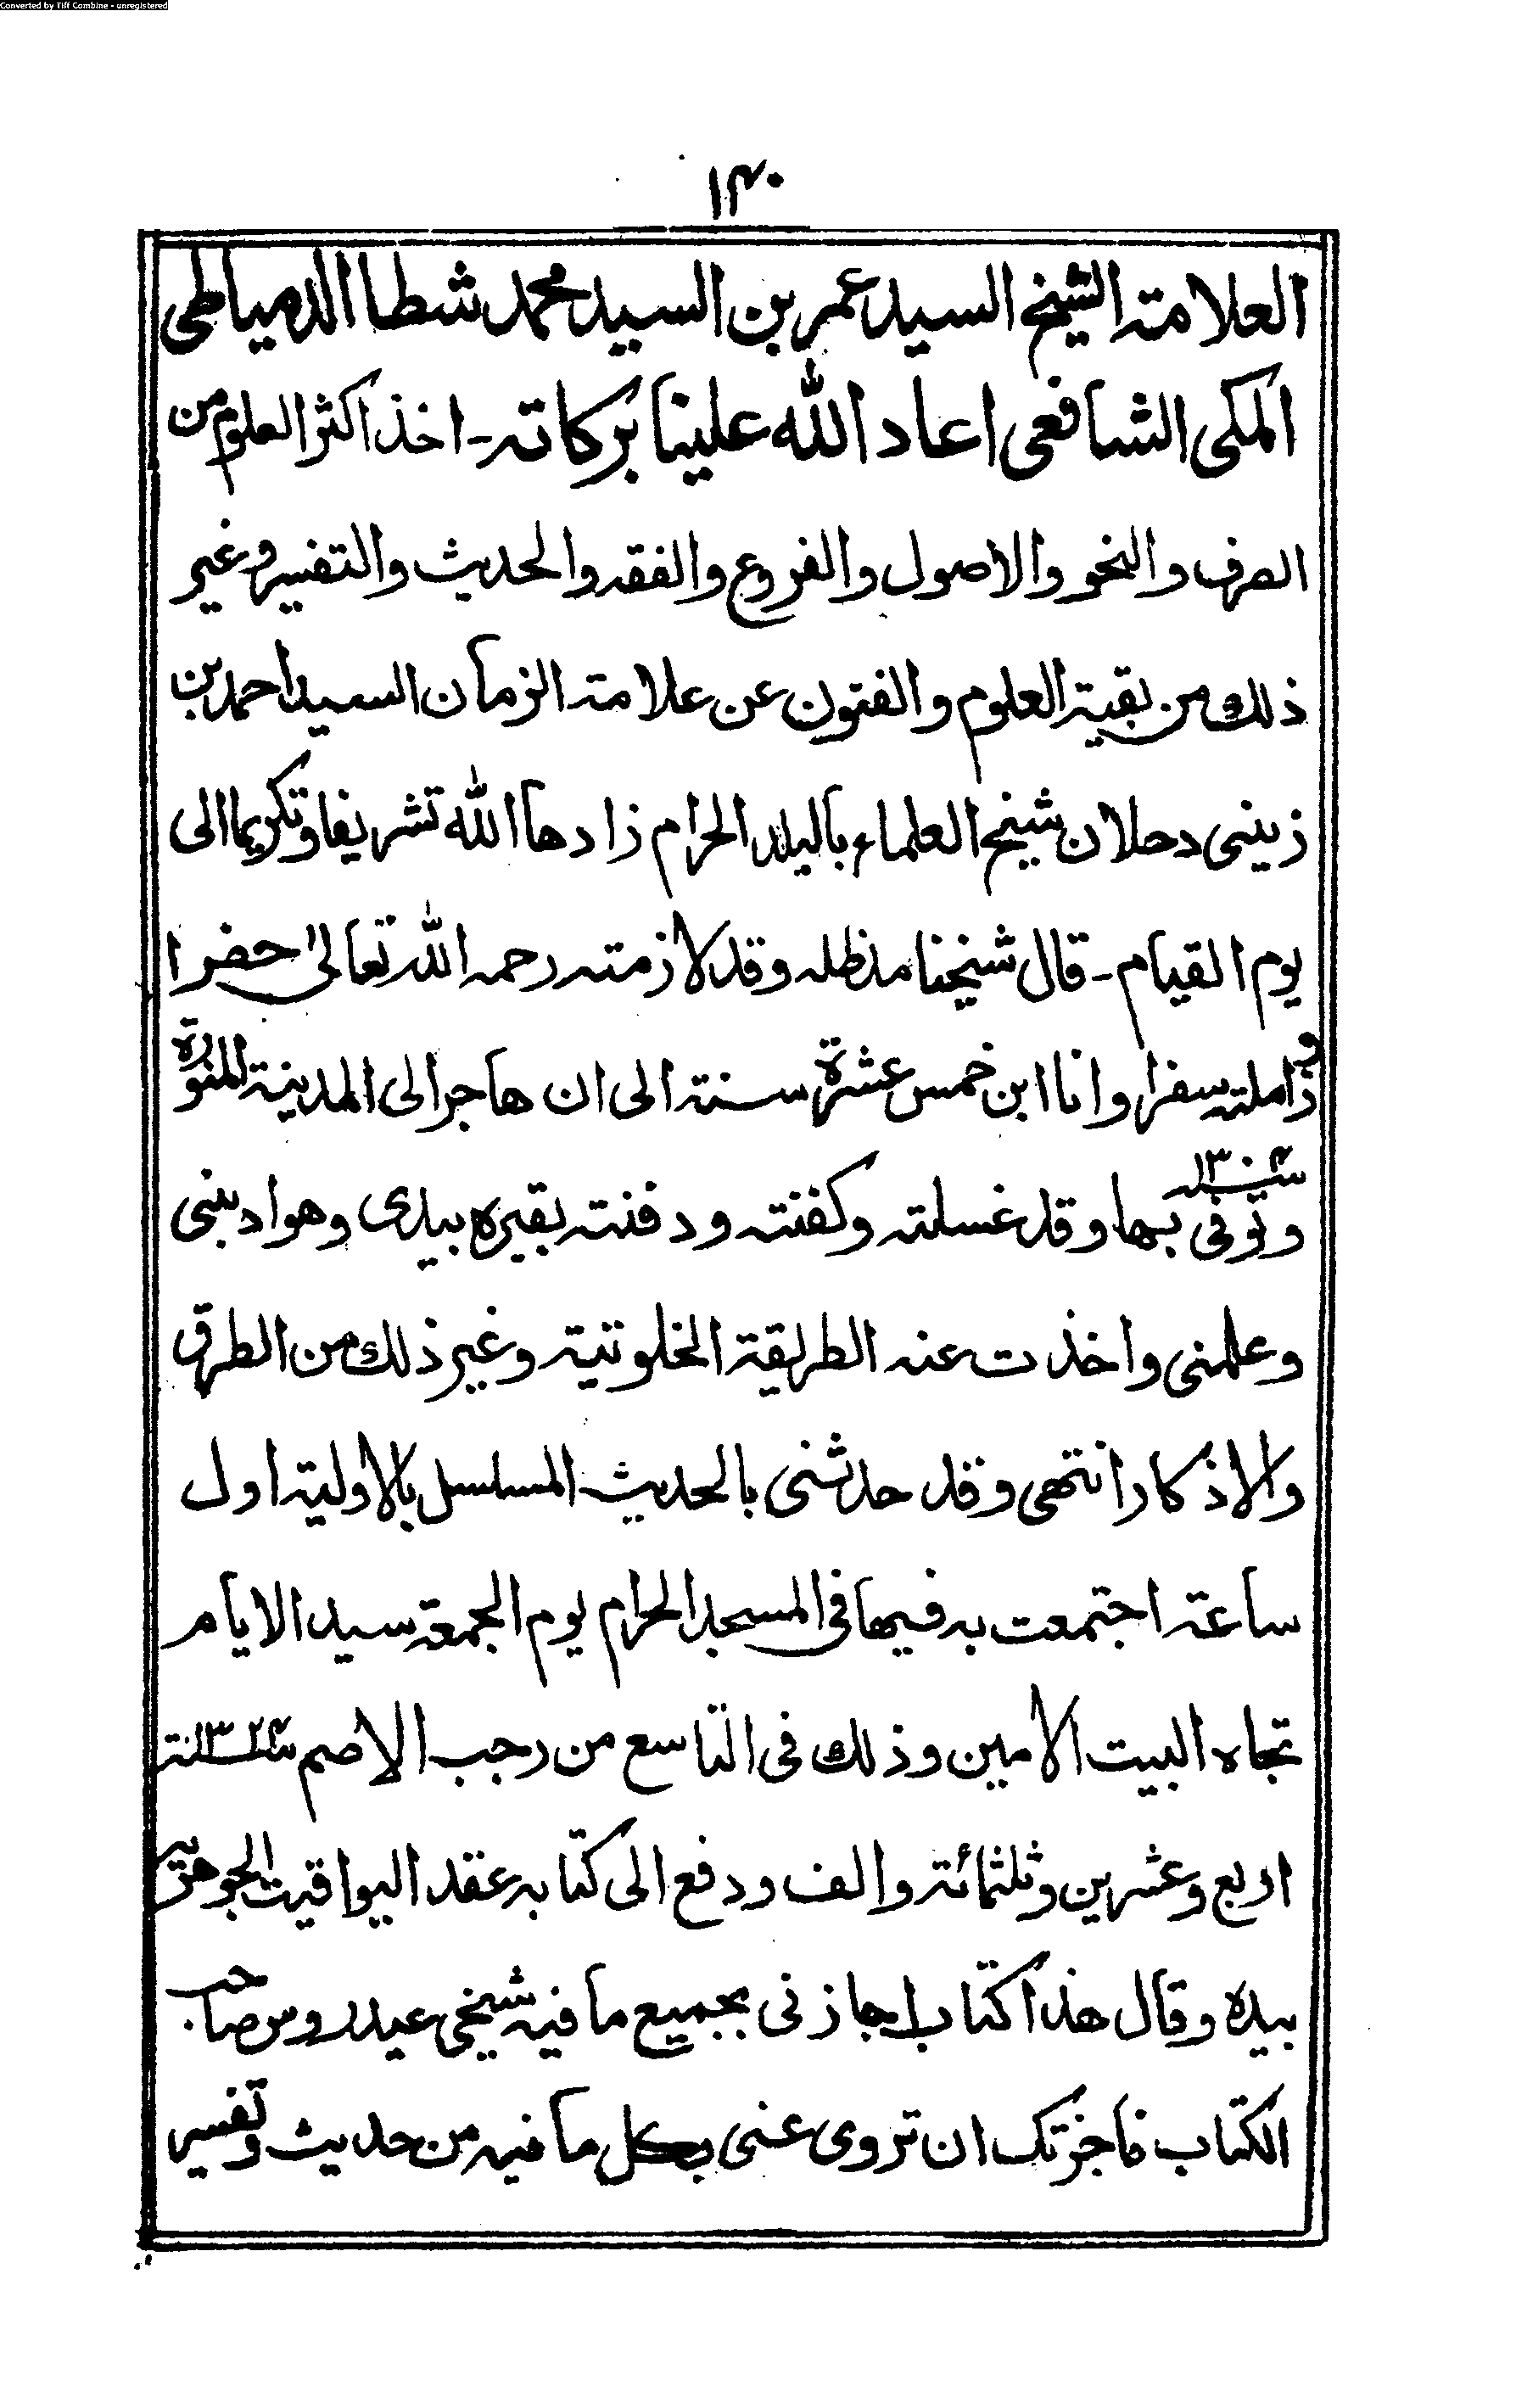 Converted by Tiff Combine - unregistered
١٣٠
العلامة الشيخ السيد عمر بن السيد محمد شطا الدمياطى
المكى الشافعى اعاد الله علينا بركاته ـ اخذ اكثر العلوم من
الصرف والنحو والاصول والفروع والفقه والحديث والتفسير وغير
ذلك من بقية العلوم والفنون عن علامة الزمان السيد احمد بن
زينى دحلان شيخ العلماء بالبلد الحرام زادها الله تشريفا وتكريما الى
يوم القيام ـ قال شيخنا مدظله وقد لازمته رحمه الله تعالى حضرا
و زاملته سفرا وانا ابن خمس عشرة سنة الى ان هاجر الى المدينة المنورة
وتوفى بها سنه ١٣٠٤ وقد غسلته وكفنته ودفنته بقبره بيدى وهو ادبنى
وعلمنى واخذت عنه الطريقة الخلوتية وغير ذلك من الطرق
والاذكار انتهى وقد حدثنى بالحديث المسلسل بالاولية اول
ساعة اجتمعت به فيها فى المسجد الحرام يوم الجمعة سيد الايام
تجاه البيت الامين وذلك فى التاسع من رجب الاصم سنة ١٣٢٤
اربع وعشرين وثلثمائة والف ودفع الى كتابه عقد اليواقيت الجوهرية
بيده وقال هذا كتاب اجازنى بجميع ما فيه شيخى عيدروس صاحب
الكتاب فاجزتك ان تروى عنى بكل ما فيه من حديث وتفسير